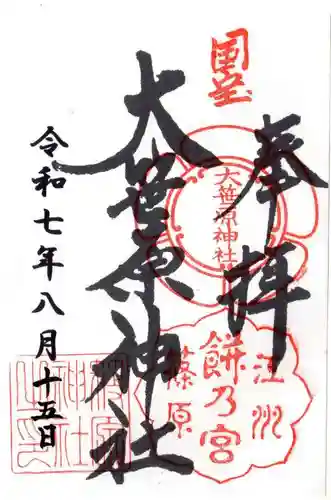 国宝
奉拝
大笹原神社
大笹原神社
江州
餅乃宮
篠原
令和七年八月十五日